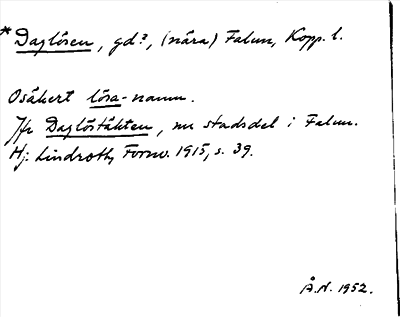 *Daglösen, gd?, (nära) Falun, Kopp. l.
Osäkert lösa-namn.
Jfr Daglöstäkten, nu stadsdel i Falun.
Hj. Lindroth, Fornv. 1915, s. 39.
Å.N. 1952.